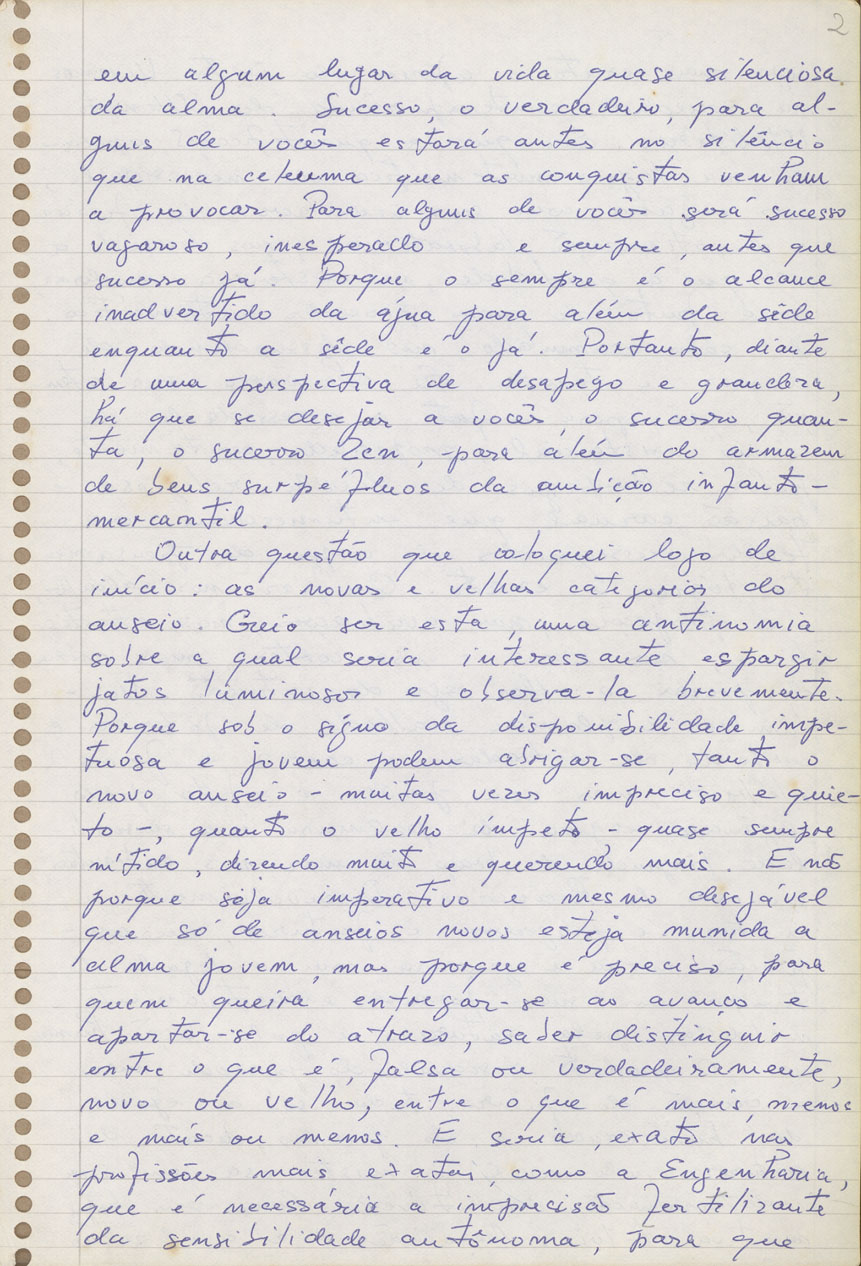 2
em algum lugar da vida quase silenciosa
da alma. Sucesso, o verdadeiro, para al-
guns de vocês estará antes no silêncio
que na celeuma que as conquistas venham
a provocar. Para alguns de vocês será sucesso
vagaroso, inesperado e sempre, antes que
sucesso já. Porque o sempre é o alcance
inadvertido da água para além da sêde
enquanto a sêde é o já. Portanto, diante
de uma perspectiva de desapego e grandeza,
há que se desejar a vocês, o sucesso quan-
ta, o sucesso Zen, - para além do armazem
de bens surpérfluos da ambição infanto-
mercantil.
Outra questão que coloquei logo de
início: as novas e velhas categorias do
anseio. Creio ser esta, uma antinomia
sobre a qual seria interessante espargir
jatos luminosos e observa-la brevemente.
Porque sob o signo da disponibilidade impe-
tuosa e jovem podem abrigar-se, tanto o
novo anseio - muitas vezes impreciso e quie-
to -, quanto o velho ímpeto, - quase sempre
nítido, dizendo muito e querendo mais. E não
porque seja imperativo e mesmo desejável
que só de anseios novos esteja munida a
alma jovem, mas porque é preciso, para
quem queira entregar-se ao avanço e
apartar-se do atrazo, saber distinguir
entre o que é, falsa ou verdadeiramente,
novo ou velho, entre o que é mais, menos
e mais ou menos. E seria, exato nas
profissões mais exatas, como a Engenharia,
que é necessária a imprecisão fertilizante
da sensibilidade autônoma, para que